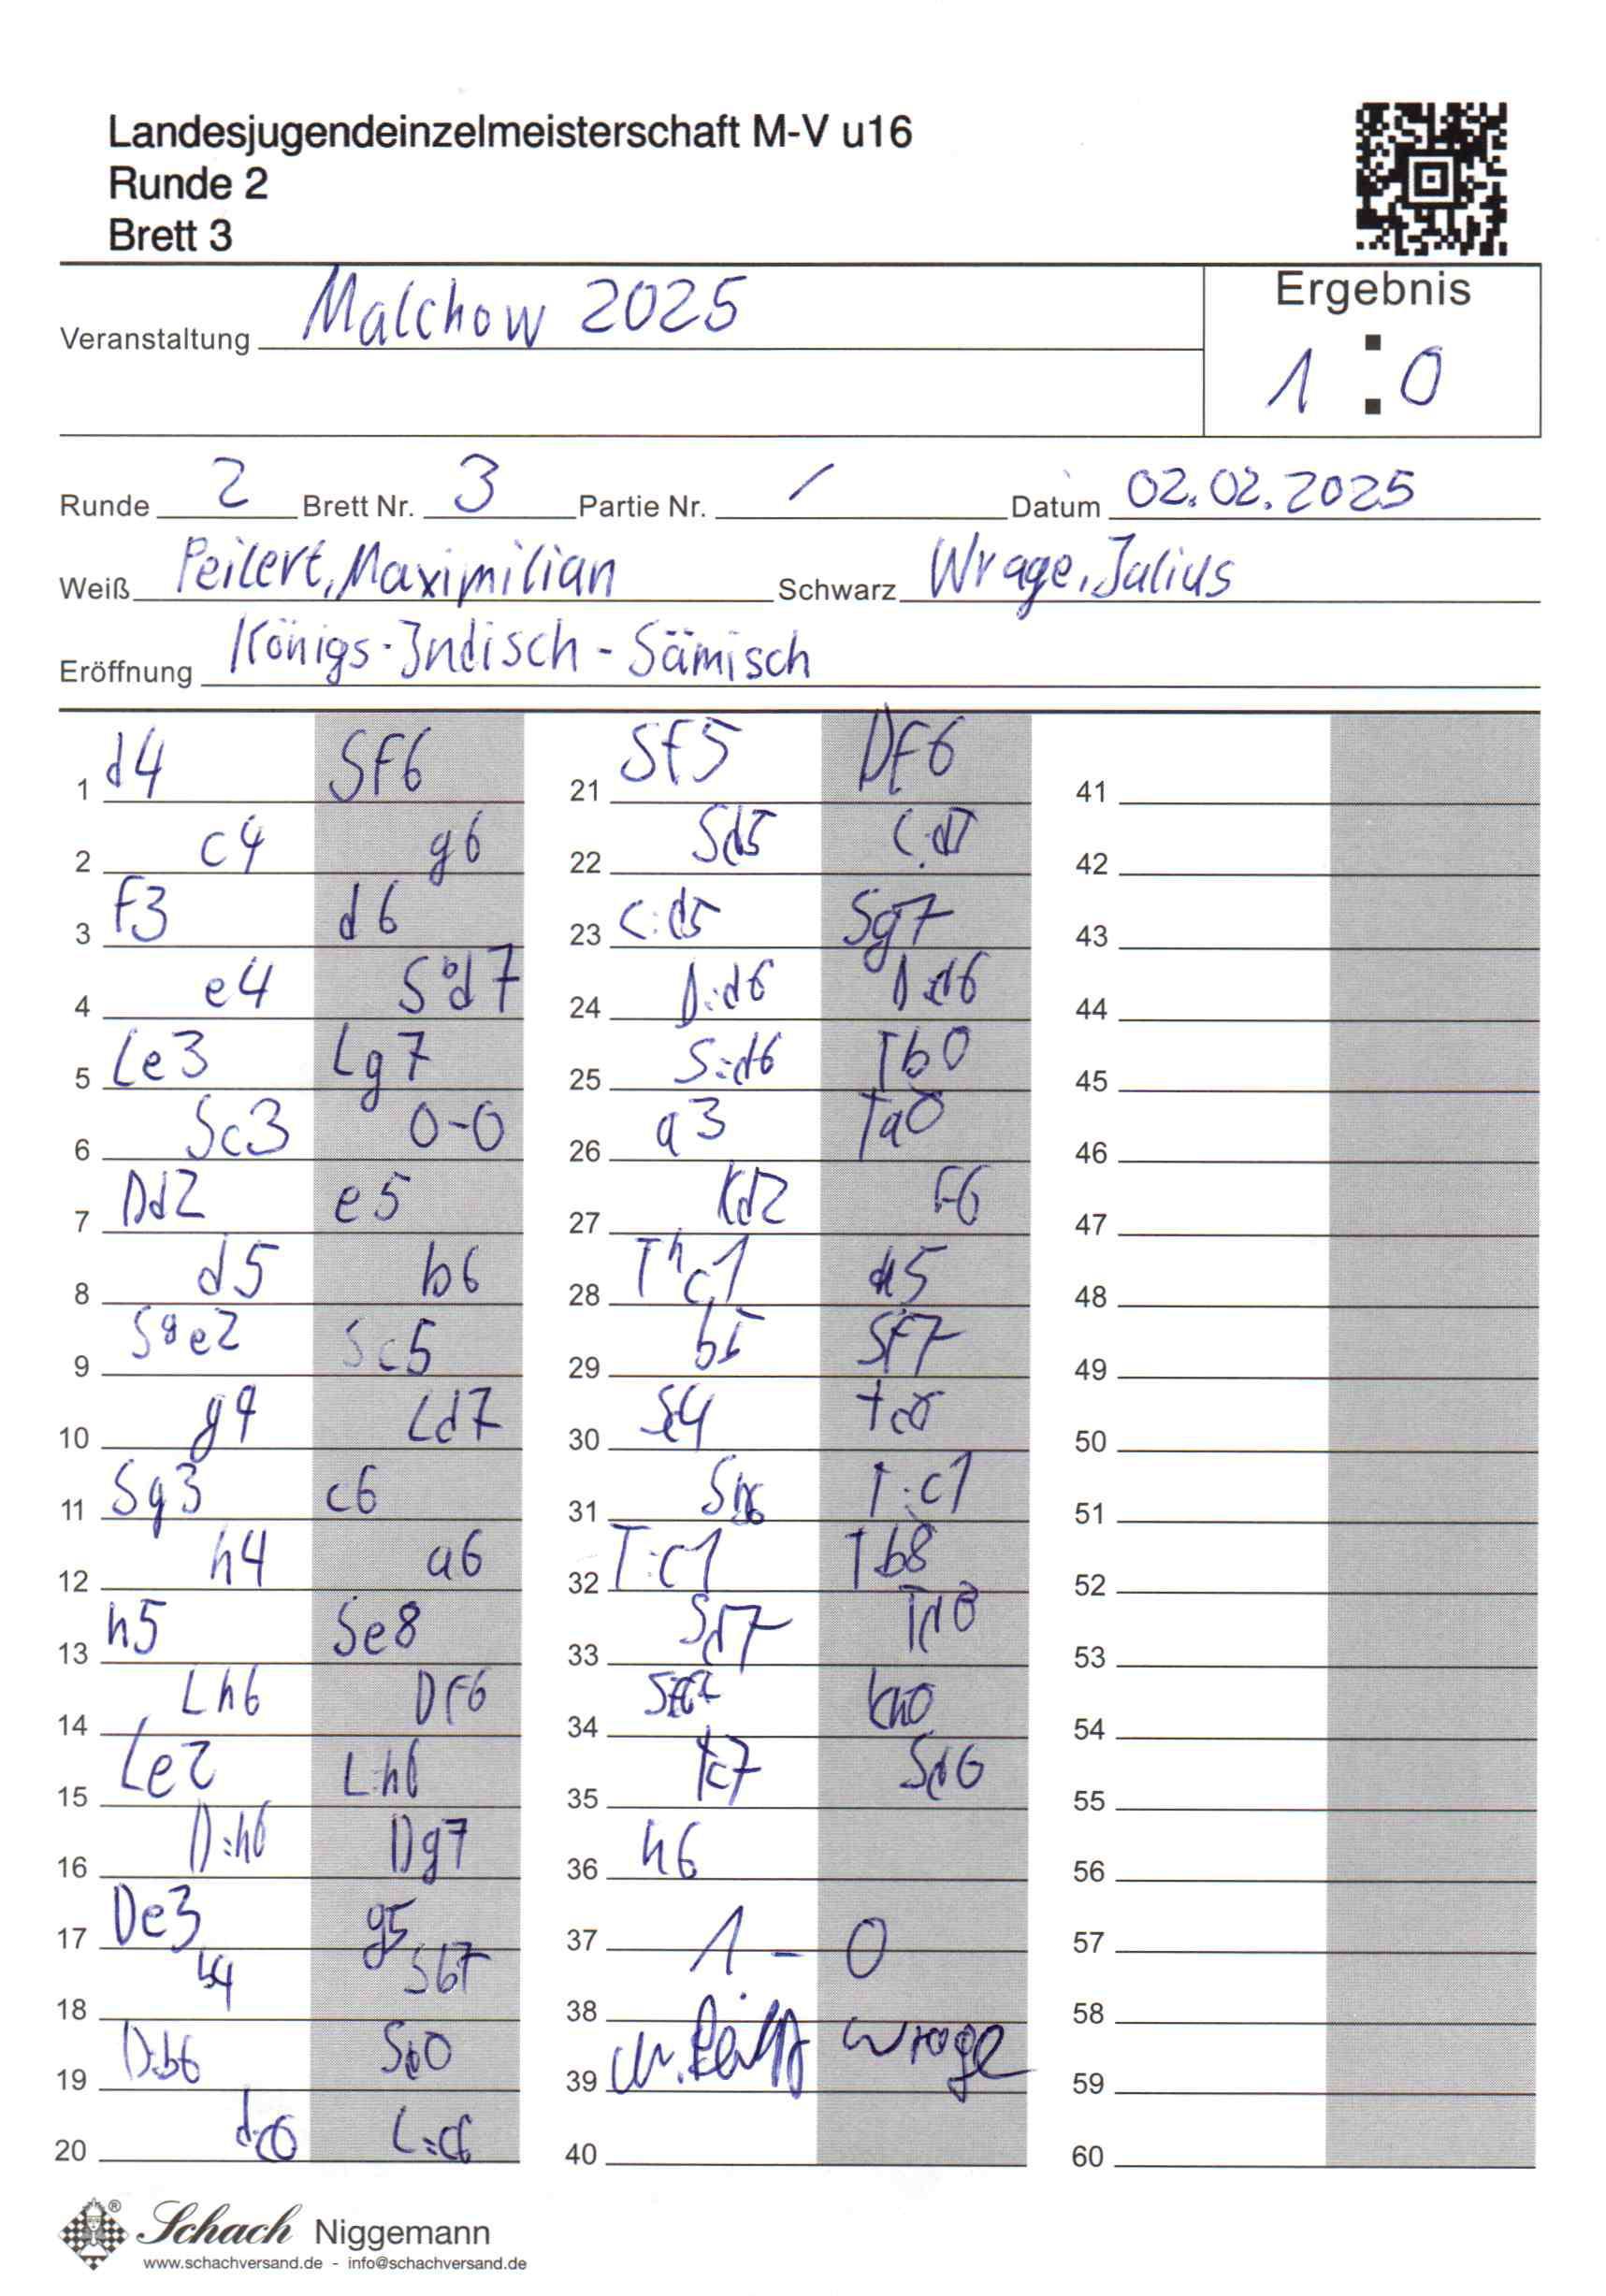 Landesjugendeinzelmeisterschaft M-V u16
Runde 2
Brett 3
Veranstaltung Malchow 2025
Ergebnis
1 : 0
Runde 2 Brett Nr. 3 Partie Nr. / Datum 02.02.2025
Weiß Peilert, Maximilian Schwarz Wrage, Julius
Eröffnung Königs-Indisch-Sämisch
1 d4 Sf6 21 Sf5 Df6 41
2 c4 g6 22 Sd5 L:d5 42
3 f3 d6 23 c:d5 Sg7 43
4 e4 Sbd7 24 D:d6 D:d6 44
5 Le3 Lg7 25 S:d6 Tb8 45
6 Sc3 0-0 26 a3 Ta8 46
7 Dd2 e5 27 Kd2 f6 47
8 d5 b6 28 Thc1 a5 48
9 Sge2 Sc5 29 b5 Sf7 49
10 g4 Ld7 30 Sc4 Tc8 50
11 Sg3 c6 31 Sb6 T:c1 51
12 h4 a6 32 T:c1 Tb8 52
13 h5 Se8 33 Sd7 Td8 53
14 Lh6 Df6 34 Kh8 54
15 Le2 L:h6 35 Tc7 Sd6 55
16 D:h6 Dg7 36 h6 56
17 De3 g5 37 1 - 0 57
18 b4 Sb7 38 58
19 D:b6 39 Wrage 59
20 d:c6 L:c6 40 60
Schach Niggemann
www.schachversand.de - info@schachversand.de